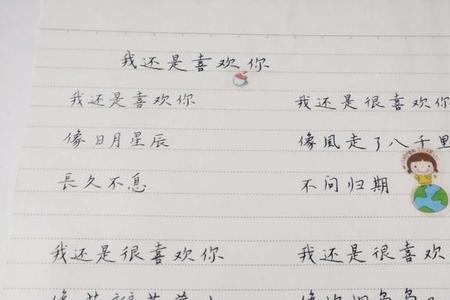 我还是喜欢你
我还是喜欢你
像日月星辰
長久不息
我还是很喜欢你
像風走了八千里
不问归期
我还是很喜欢你
我还是很喜欢